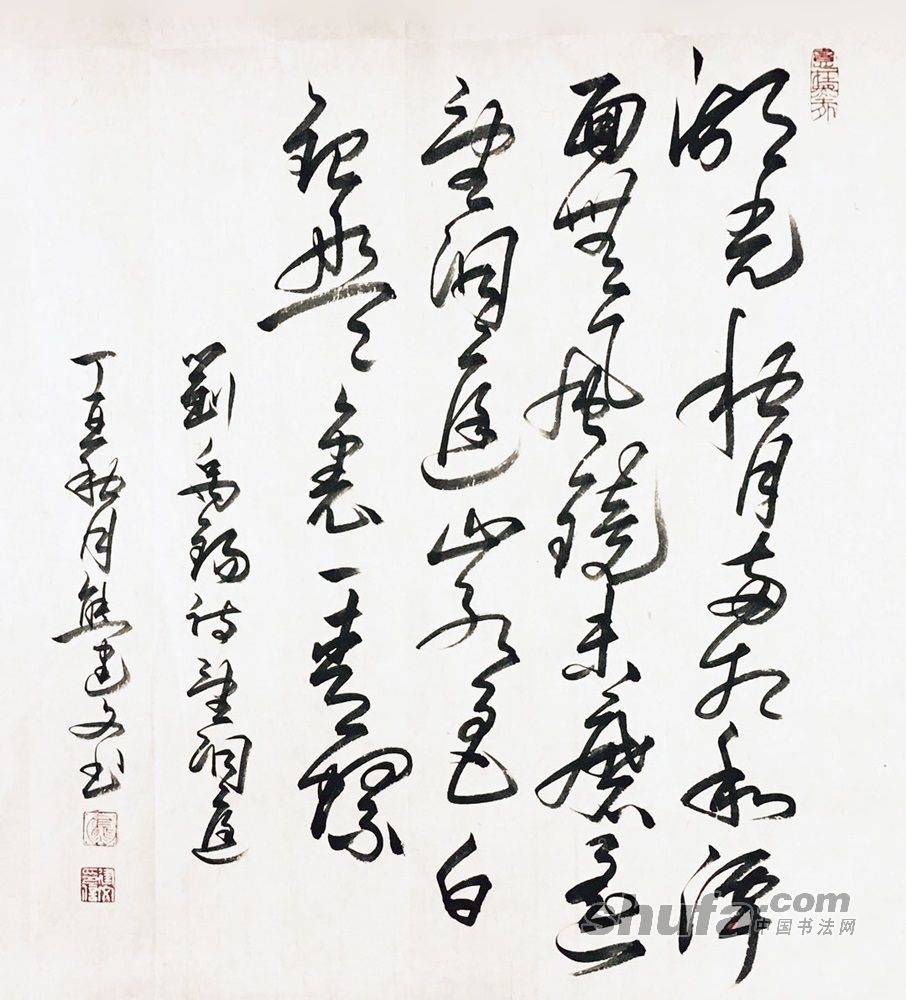 湖光秋月兩相和潭
面無風鏡未磨遥
望洞庭山水色白
銀盤裏一青螺
劉禹錫詩望洞庭
丁丑秋月熊建文書
shufa.com
中国书法网